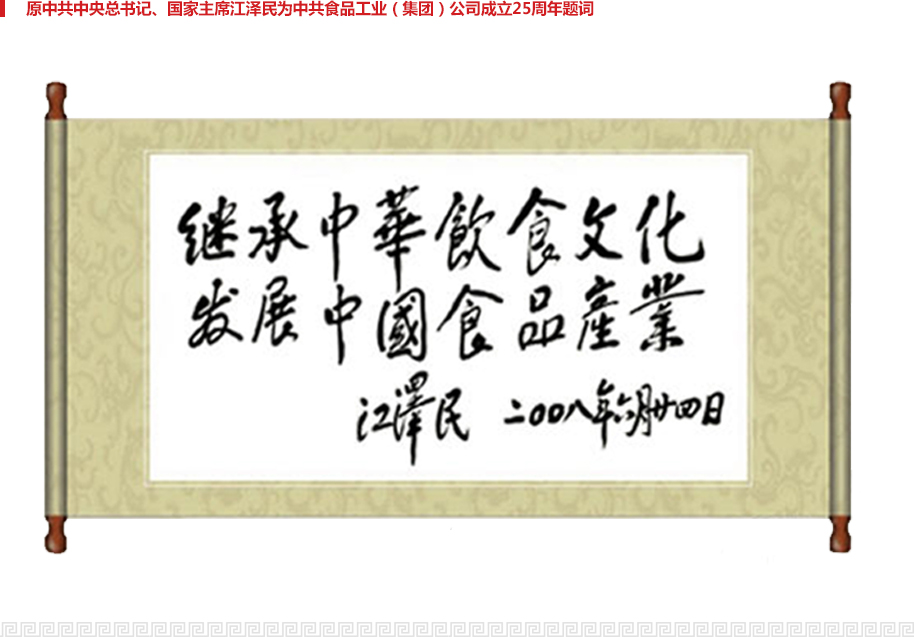 原中共中央总书记、国家主席江泽民为中共食品工业（集团）公司成立25周年题词
继承中華飲食文化
发展中國食品產業
江澤民 二〇〇八年六月廿四日